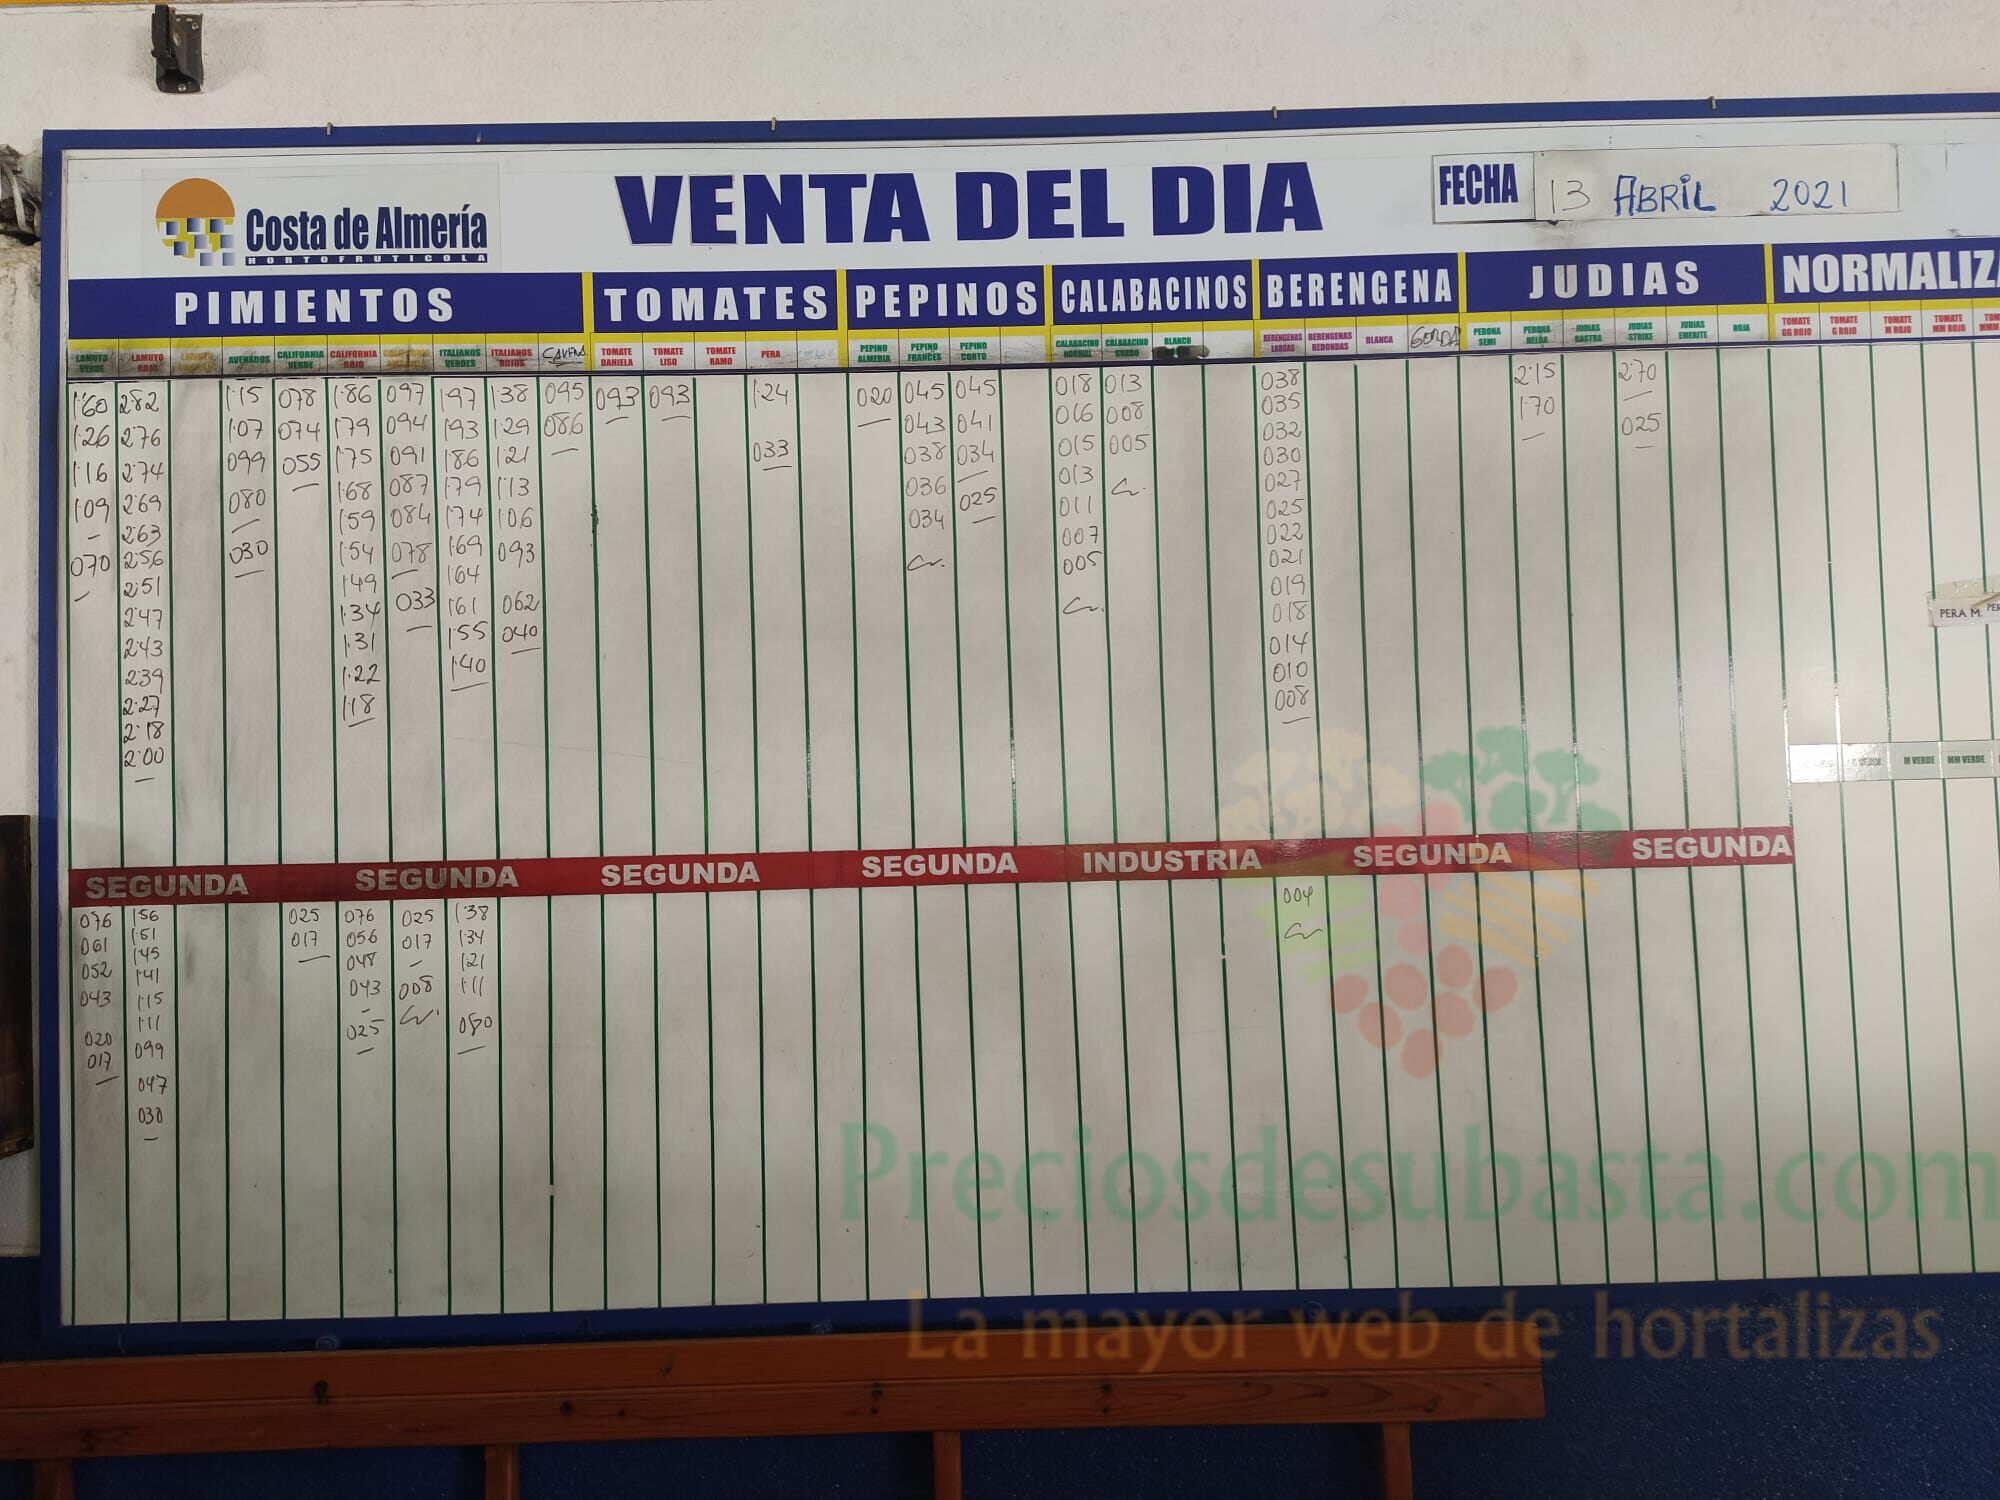 Costa de Almería
HORTOFRUTICOLA
VENTA DEL DIA
FECHA 13 ABRIL 2021
PIMIENTOS TOMATES PEPINOS CALABACINOS BERENGENA JUDIAS NORMALIZA
LAMUYO VERDE
LAMUYO ROJO
AVENADOS
CALIFORNIA VERDE
CALIFORNIA ROJO
CALIFORNIA
ITALIANOS VERDES
ITALIANOS ROJOS
TOMATE DANIELA
TOMATE LISO
TOMATE RAMO
PERA
PEPINO ALMERIA
PEPINO FRANCES
PEPINO CORTO
CALABACINO NORMAL
CALABACINO GORDO
BLANCO
BERENGENAS LARGAS
BERENGENAS REDONDAS
BLANCA
GORDA
PERONA SEMI
PERONA HELDA
JUDIAS RASTRA
JUDIAS STRIKE
JUDIAS EMERITE
ROJA
TOMATE GG ROJO
TOMATE G ROJO
TOMATE M ROJO
TOMATE MM ROJO
1'60 2'82 1'15 078 1'86 097 1'97 1'38 095 093 093 1'24 020 045 045 018 013 038 2'15 2'70
1'26 2'76 1'07 074 1'79 094 1'93 1'29 086 043 041 016 008 035 1'70
1'16 2'74 099 055 1'75 091 1'86 1'21 033 038 034 015 005 032 025
1'09 2'69 080 1'68 087 1'79 1'13 036 025 013 030
2'63 1'59 084 1'74 1'06 034 011 027
070 2'56 030 1'54 078 1'69 093 007 025
2'51 1'49 1'64 005 022
2'47 1'34 033 1'61 062 021
2'43 1'31 1'55 040 019
2'39 1'22 1'40 018
2'27 1'18 014
2'18 010
2'00 008
PERA M.
M VERDE
MM VERDE
SEGUNDA SEGUNDA SEGUNDA SEGUNDA INDUSTRIA SEGUNDA SEGUNDA
076 1'56 025 076 025 1'38 004
061 1'51 017 056 017 1'34
052 1'45 048 1'21
043 1'41 043 008 1'11
1'15
020 1'11 025 080
017 099
047
030
Preciosdesubasta.com
La mayor web de hortalizas